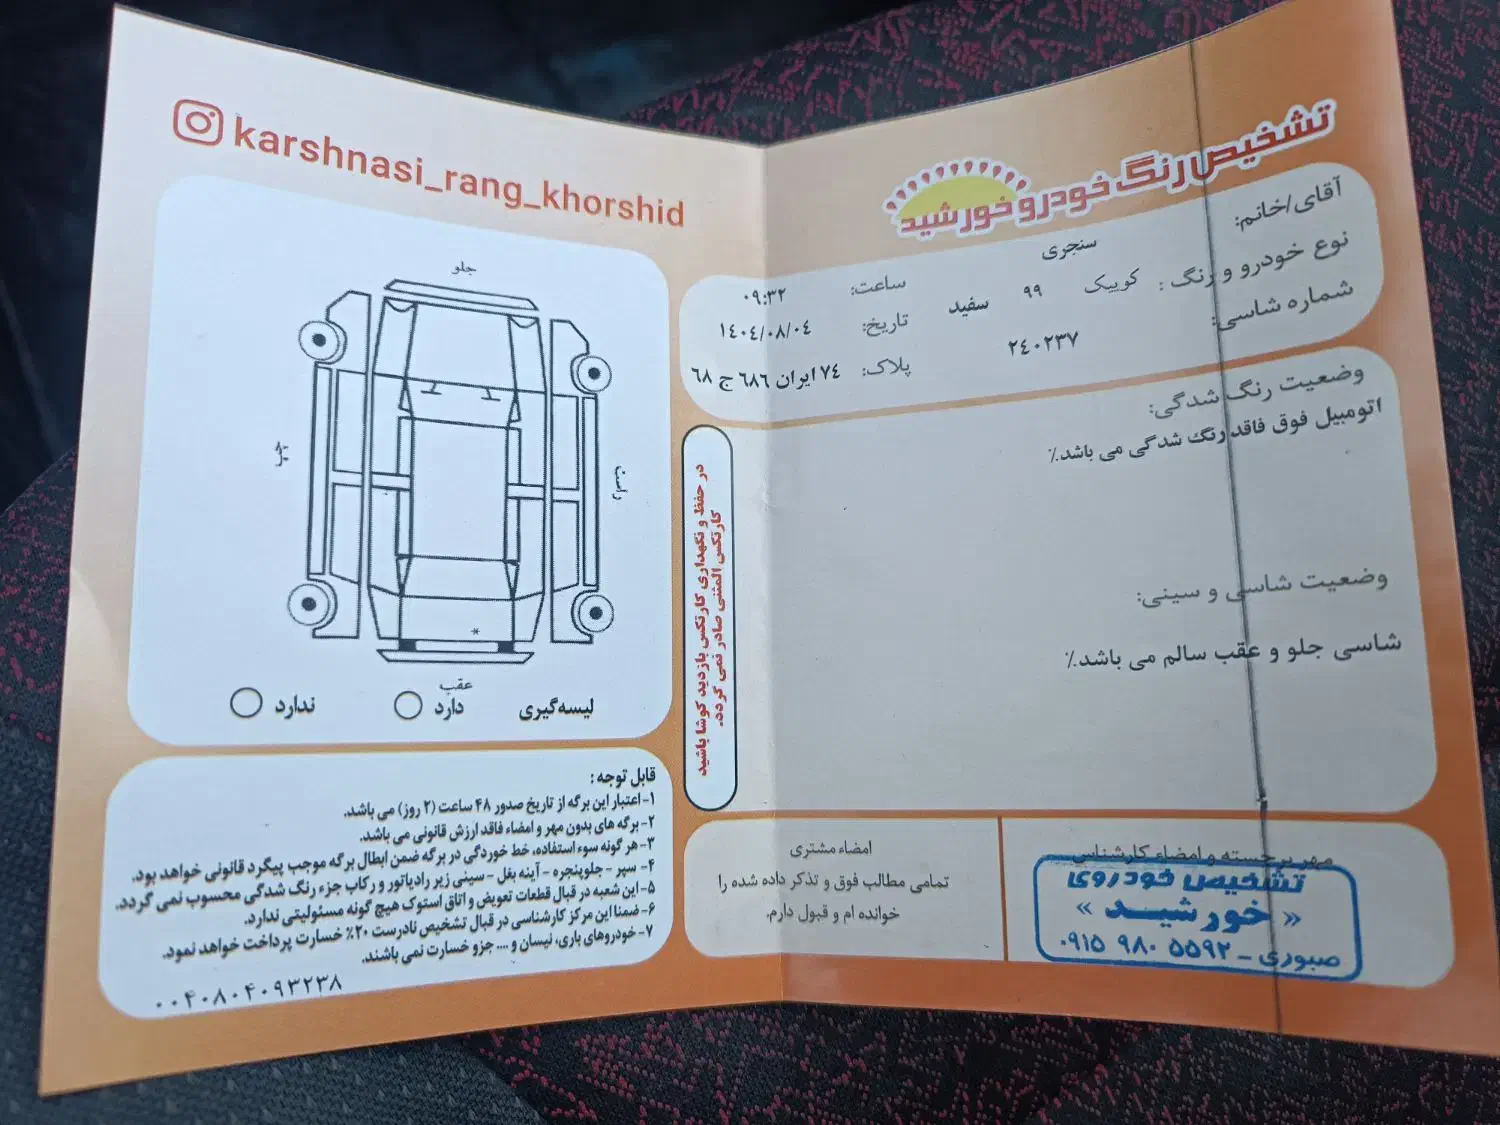 karshnasi_rang_khorshid
جلو
چپ
راست
*
عقب
لیسه‌گیری دارد ندارد
قابل توجه :
۱- اعتبار این برگه از تاریخ صدور ۴۸ ساعت (۲ روز) می باشد.
۲- برگه های بدون مهر و امضاء فاقد ارزش قانونی می باشد.
۳- هر گونه سوء استفاده، خط خوردگی در برگه ضمن ابطال برگه موجب پیگرد قانونی خواهد بود.
۴- سپر - جلوپنجره - آینه بغل - سینی زیر رادیاتور و رکاب جزء رنگ شدگی محسوب نمی گردد.
۵- این شعبه در قبال قطعات تعویض و اتاق استوک هیچ گونه مسئولیتی ندارد.
۶- ضمنا این مرکز کارشناسی در قبال تشخیص نادرست ۲۰٪ خسارت پرداخت خواهد نمود.
۷- خودروهای باری، نیسان و .... جزو خسارت نمی باشند.
۰۰۴۰۸۰۴۰۹۳۲۳۸
تشخیص رنگ خودرو خورشید
آقای/خانم: سنجری
نوع خودرو و رنگ : کوییک ۹۹ سفید
شماره شاسی: ۲۴۰۲۳۷
ساعت: ۰۹:۳۲
تاریخ: ۱۴۰۴/۰۸/۰۴
پلاک: ۷۴ ایران ۶۸۶ ج ۶۸
وضعیت رنگ شدگی:
اتومبیل فوق فاقد رنگ شدگی می باشد.٪
وضعیت شاسی و سینی:
شاسی جلو و عقب سالم می باشد.٪
در حفظ و نگهداری کارتکس بازدید کوشا باشید
کارتکس المثنی صادر نمی گردد.
مهر برجسته و امضاء کارشناس
تشخیص خودروی
« خورشید »
صبوری - ۰۹۱۵ ۹۸۰ ۵۵۹۲
امضاء مشتری
تمامی مطالب فوق و تذکر داده شده را
خوانده ام و قبول دارم.